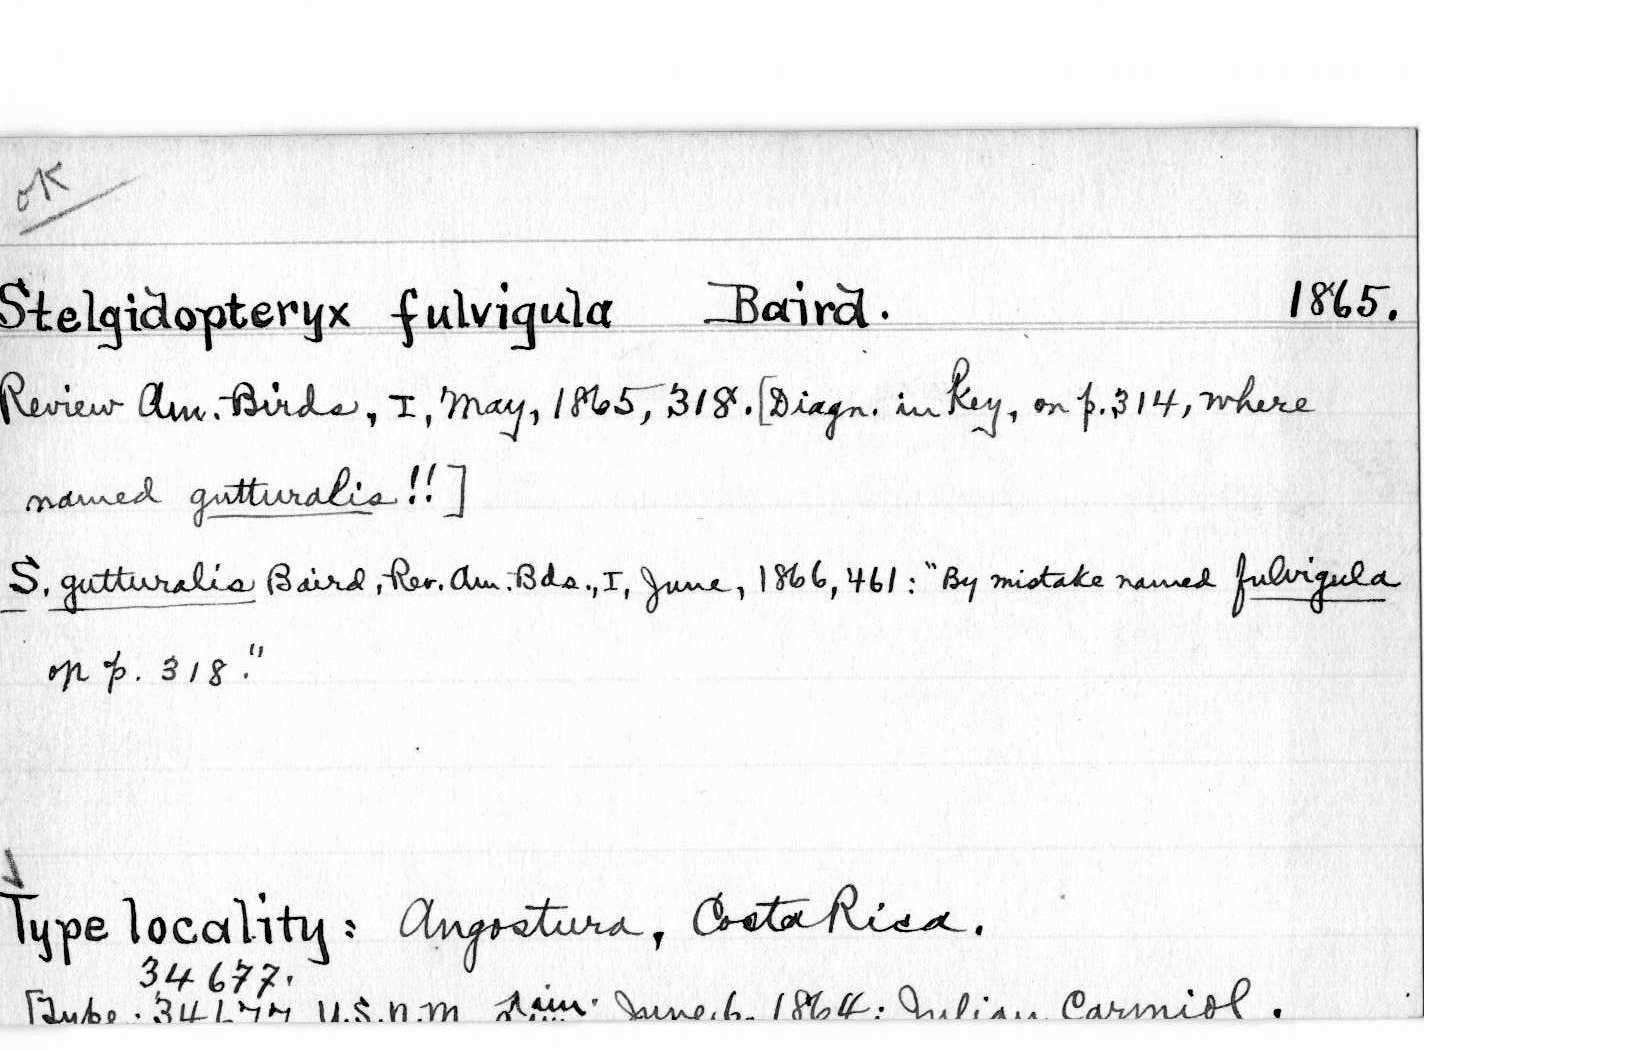 OK
Stelgidopteryx fulvigula Baird. 1865.
Review Am. Birds, I, May, 1865, 318. [Diagn. in Key, on p. 314, where
named gutturalis!!]
S. gutturalis Baird, Rev. Am. Bds., I, June, 1866, 461: "By mistake named fulvigula
on p. 318."
Type locality: Angostura, Costa Rica.
34677.
[Type: 34677 U.S.N.M. June 6, 1864; Julian Carmiol.